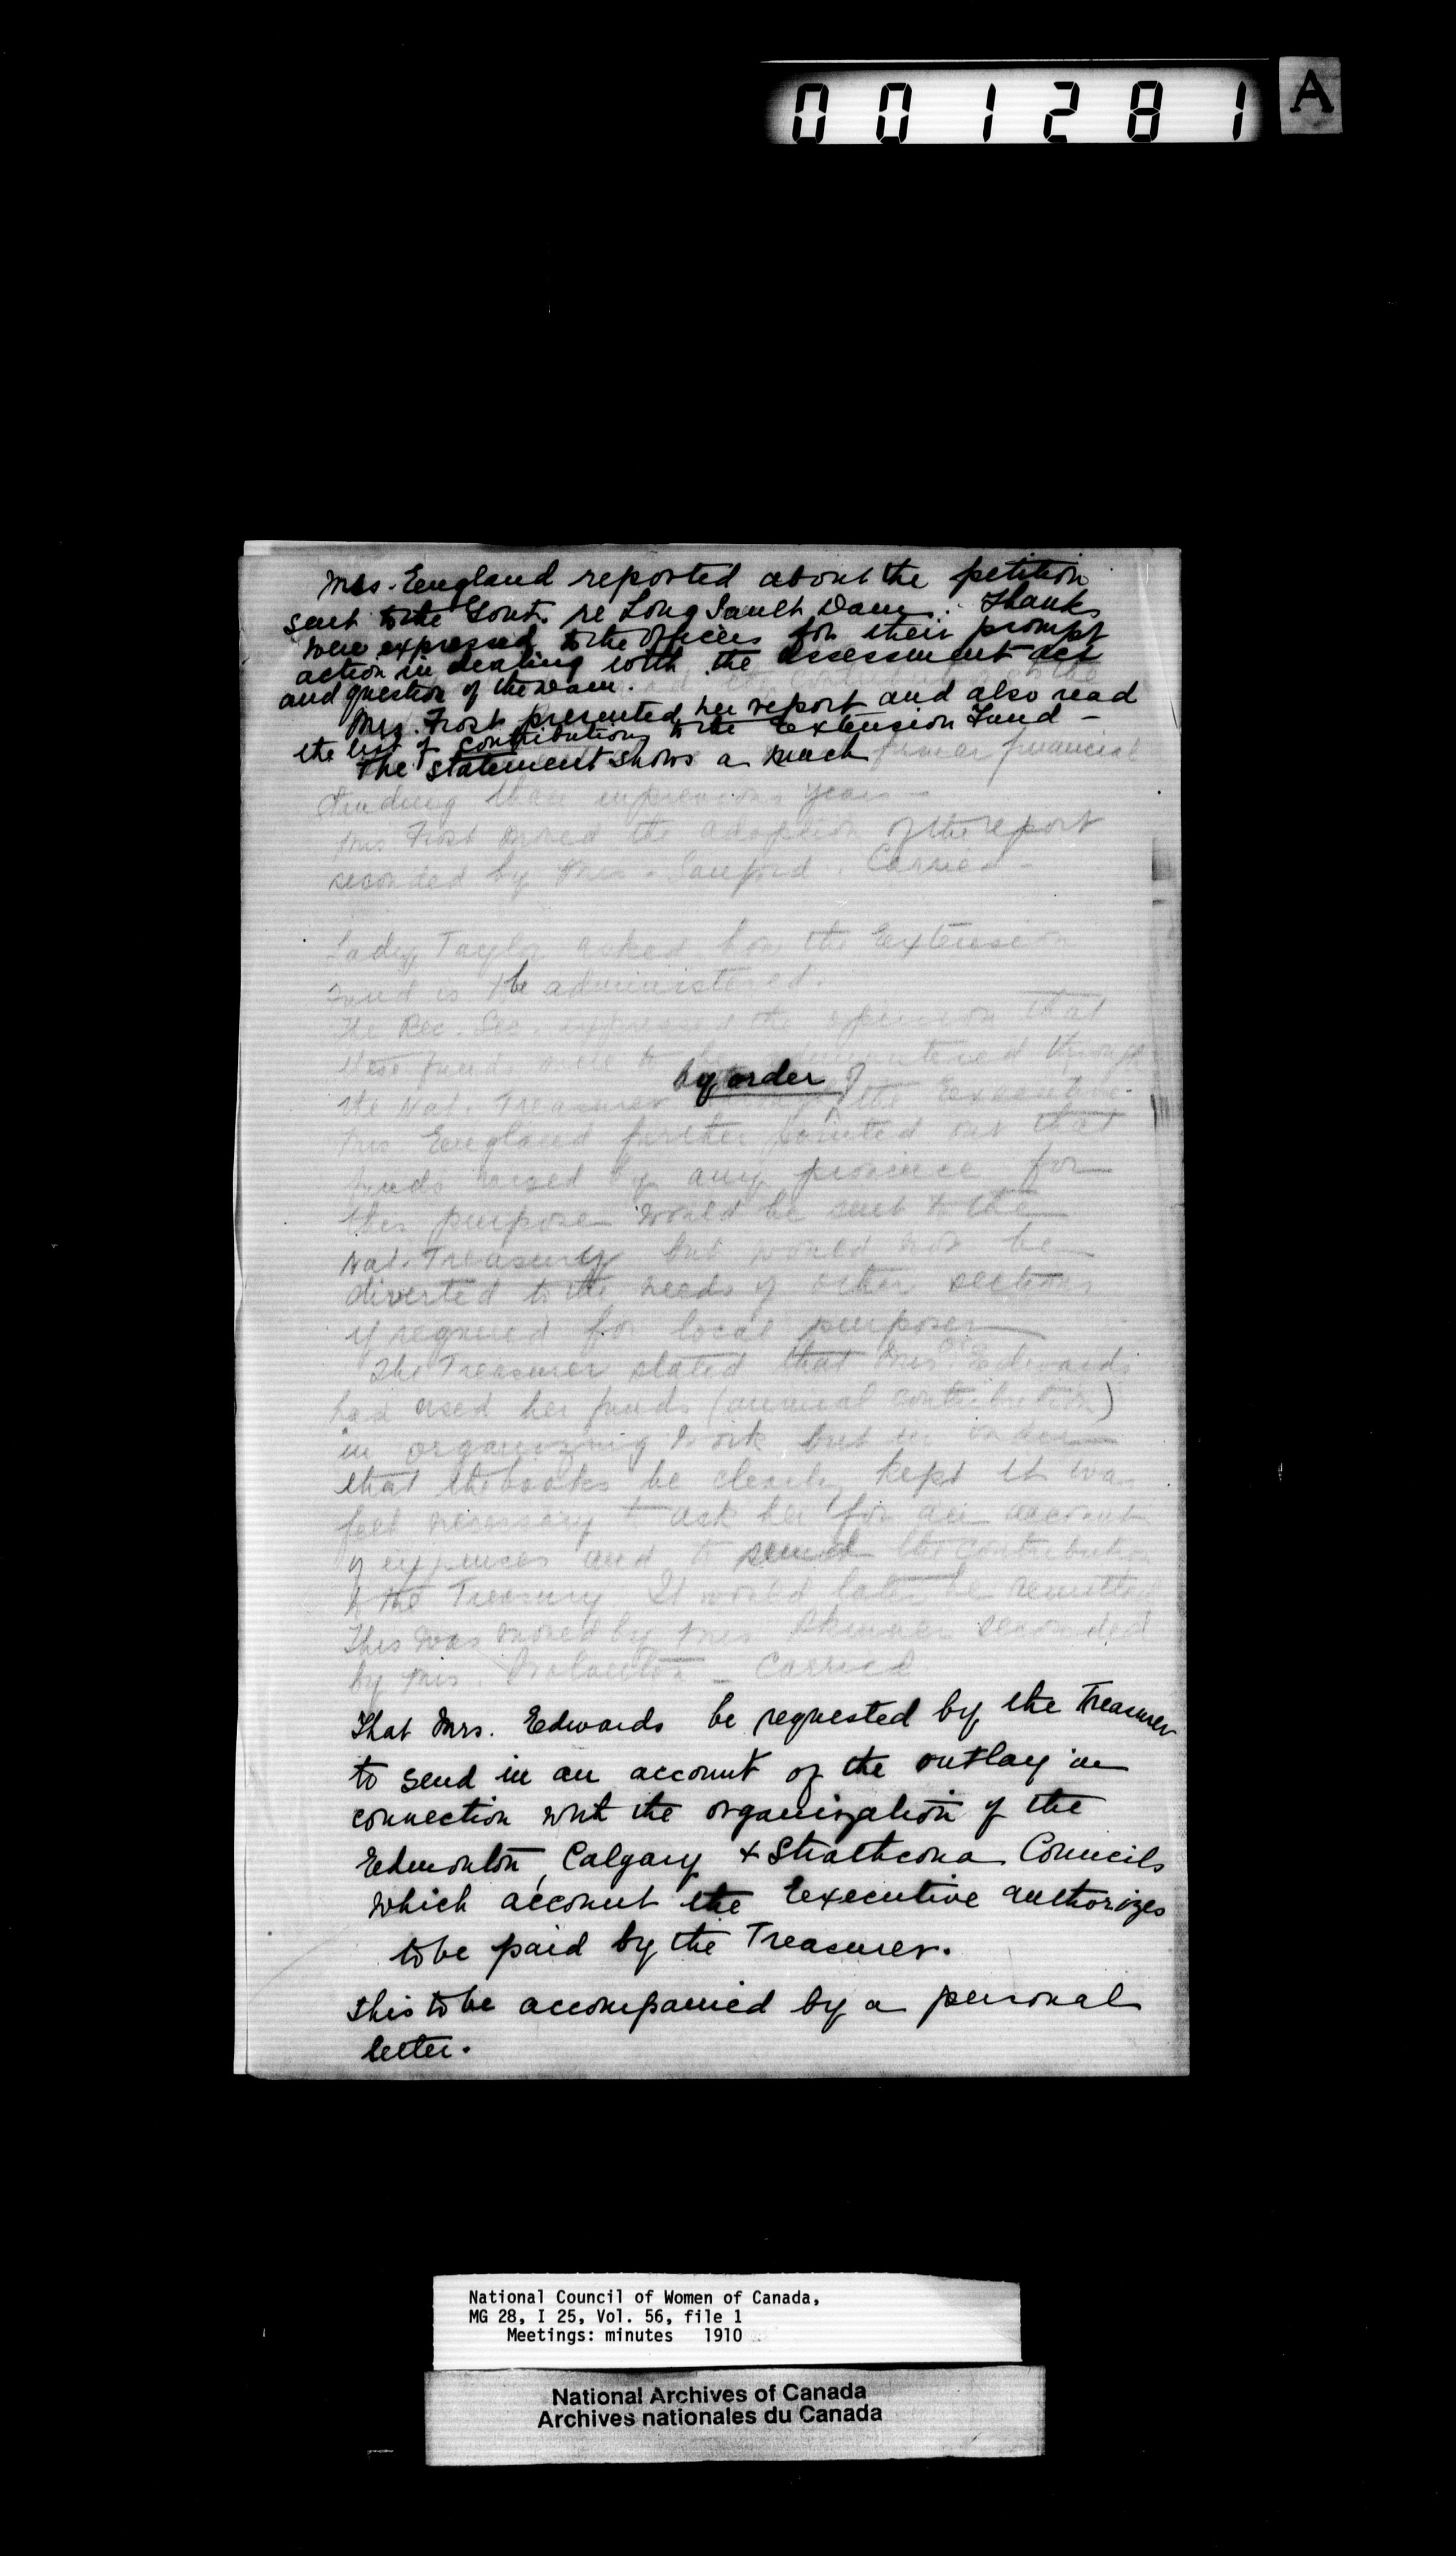 001281
A
Mrs. England reported about the petition
sent to the Govt. re Long Sault Dam. Thanks
were expressed to the Officers for their prompt
action in dealing with the assessment act
and question of the Dam.
Mrs. Frost presented her report and also read
the list of contributions to the Extension Fund –
The statement shows a much firmer financial
standing than in previous years –
Mrs Frost moved the adoption of the report
seconded by Mrs. Sanford. Carried –
Lady Taylor asked how the Extension
Fund is to be administered.
The Rec. Sec. expressed the opinion that
these funds were to be administered through
by order of
the Nat. Treasurer the Executive.
Mrs England further pointed out that
funds raised by any province for
this purpose would be sent to the
Nat. Treasury but would not be
diverted to the needs of other sections
if required for local purposes
The Treasurer stated that Mrs. Edwards
had used her funds (annual contribution)
in organizing work but in order
that the books be clearly kept it was
felt necessary to ask her for an account
of expenses and to send the contribution
to the Treasury. It would later be remitted
This was moved by Mrs Skinner seconded
by Mrs. – Carried
That Mrs. Edwards be requested by the Treasurer
to send in an account of the outlay in
connection with the organization of the
Edmonton, Calgary & Strathcona Councils
which account the Executive authorizes
to be paid by the Treasurer.
This to be accompanied by a personal
letter.
National Council of Women of Canada,
MG 28, I 25, Vol. 56, file 1
Meetings: minutes 1910
National Archives of Canada
Archives nationales du Canada